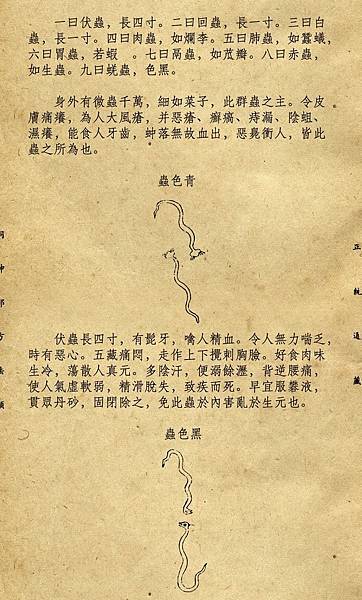 一曰伏蟲,長四寸。二曰回蟲,長一寸。三曰白
蟲,長一寸。四曰肉蟲,如爛李。五曰肺蟲,如蠶蟻,
六曰胃蟲,若蝦 。七曰鬲蟲,如苽瓣。八曰赤蟲,
如生蟲。九曰蜣蟲,色黑。
身外有微蟲千萬,細如菜子,此群蟲之主。令皮
膚痛癢,為人大風瘡,并惡瘡、癬痛、痔漏、陰蛆、
濕癢,能食人牙齒,蚛落無故血出,惡臭衝人,皆此
蟲之所為也。
蟲色青
正統道藏
伏蟲長四寸,有髭牙,噙人精血。令人無力喘乏,
時有惡心。五藏痛悶,走作上下攪刺胸臉。好食肉味
生冷,蕩散人真元。多陰汗,便溺餘瀝,背逆腰痛,
使人氣虛軟弱,精滑脫失,致疾而死。早宜服礜液,
貫眾丹砂,固閉除之,免此蟲於內害亂於生元也。
蟲色黑